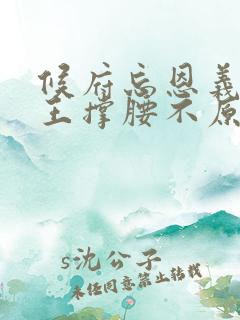 候府忘恩義
王撑腰不原
s沈公子
未经同意禁止转载